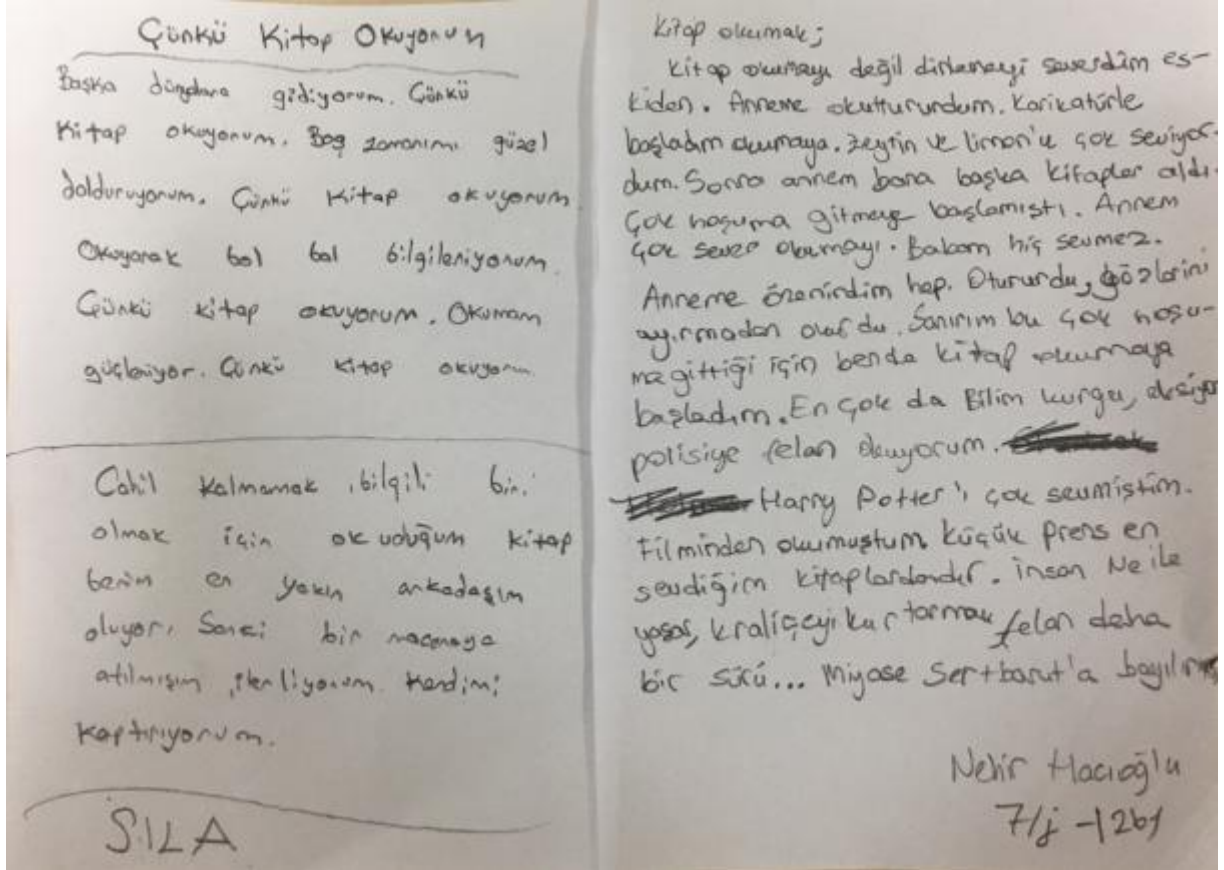 Çünkü Kitap Okuyorum
Başka dünyalara gidiyorum. Çünkü
Kitap okuyorum. Boş zamanımı güzel
dolduruyorum. Çünkü Kitap okuyorum
Okuyarak bol bol bilgileniyorum
Çünkü kitap okuyorum. Okumam
güçleniyor. Çünkü kitap okuyorum.
Cahil kalmamak, bilgili biri
olmak için okuduğum kitap
benim en yakın arkadaşım
oluyor. Sanki bir maceraya
atılmışım, ilerliyorum. Kendimi
kaptırıyorum.
SILA
Kitap okumak;
Kitap okumayı değil dinlemeyi severdim es-
kiden. Anneme okuttururdum. Karikatürle
başladım okumaya. Zeytin ve Limon'u çok seviyor-
dum. Sonra annem bana başka kitaplar aldı.
Çok hoşuma gitmeye başlamıştı. Annem
çok sever okumayı. Babam hiç sevmez.
Anneme özenirdim hep. Otururdu, gözlerini
ayırmadan okurdu. Sanırım bu çok hoşu-
ma gittiği için bende kitap okumaya
başladım. En çok da Bilim kurgu, aksiyon
polisiye felan okuyorum.
Harry Potter'ı çok sevmiştim.
Filminden okumuştum Küçük Prens en
sevdiğim kitaplardandır. İnsan Ne ile
yaşar, kraliçeyi kurtarmak felan daha
bir sürü... Miyase Sertbarut'a bayılırım
Nehir Hacıoğlu
7/j - 1261